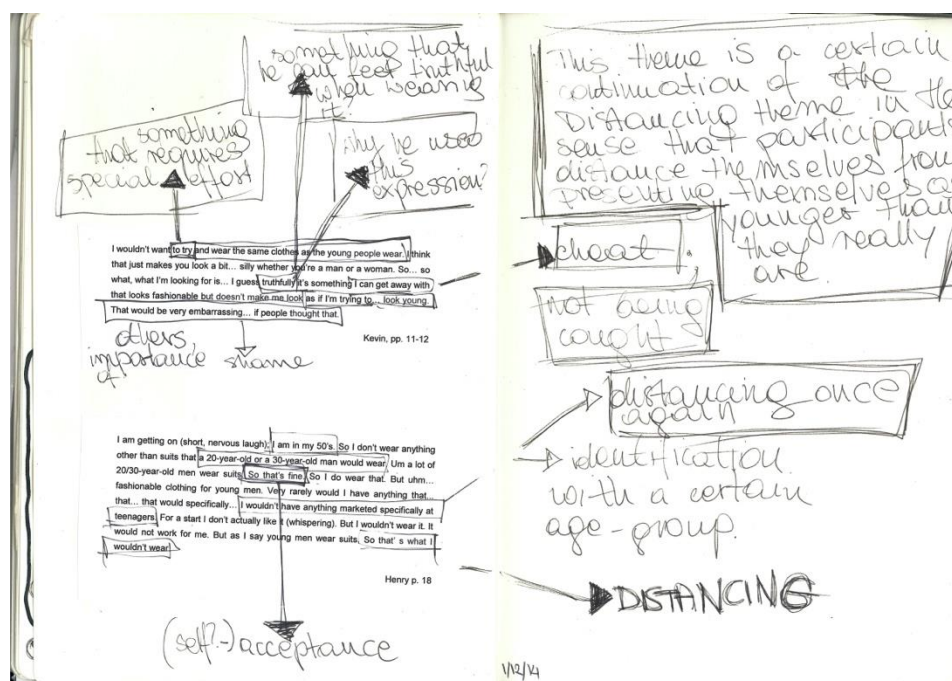 something that
he can feel truthful
when wearing
it.
something
that requires
special effort
Why he used
this
expression?
I wouldn't want to try and wear the same clothes as the young people wear. I think
that just makes you look a bit... silly whether you're a man or a woman. So... so
what, what I'm looking for is... I guess truthfully it's something I can get away with
that looks fashionable but doesn't make me look as if I'm trying to... look young.
That would be very embarrassing... if people thought that.
Kevin, pp. 11-12
others,
importance
of
shame
I am getting on (short, nervous laugh); I am in my 50's. So I don't wear anything
other than suits that a 20-year-old or a 30-year-old man would wear. Um a lot of
20/30-year-old men wear suits. So that's fine. So I do wear that. But uhm...
fashionable clothing for young men. Very rarely would I have anything that...
that... that would specifically... I wouldn't have anything marketed specifically at
teenagers. For a start I don't actually like it (whispering). But I wouldn't wear it. It
would not work for me. But as I say young men wear suits. So that' s what I
wouldn't wear.
Henry p. 18
(self?-)acceptance
This theme is a certain
continuation of the
Distancing theme in the
sense that participants
distance themselves from
presenting themselves as
younger than
they really
are.
cheat
not being
caught
distancing once
again
identification
with a certain
age-group.
DISTANCING
1/12/14